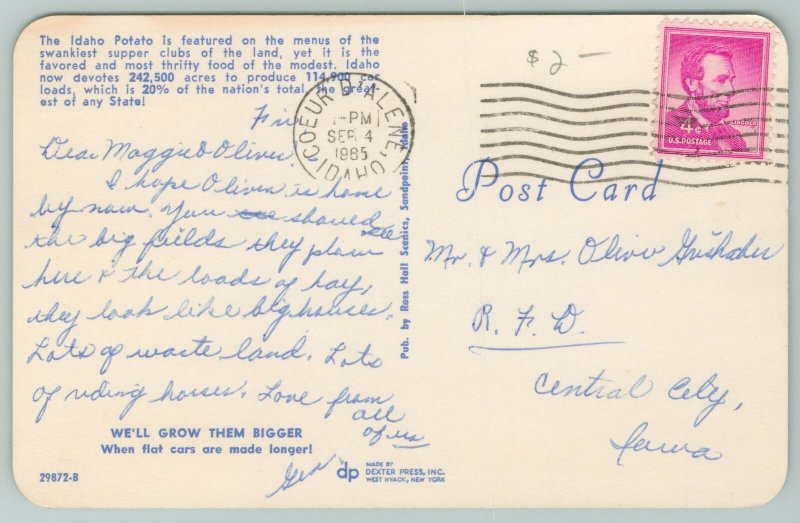 The Idaho Potato is featured on the menus of the
swankiest supper clubs of the land, yet it is the
favored and most thrifty food of the modest. Idaho
now devotes 242,500 acres to produce 114,900 car
loads, which is 20% of the nation's total, the great
est of any State!
Fri
Dear Maggie & Oliver.
I hope Oliver is home
by now. You should see
the big fields they plow
here & the loads of hay,
they look like big houses.
Lots of waste land. Lots
of riding horses. Love from
all
of us
WE'LL GROW THEM BIGGER
When flat cars are made longer!
29872-B
dp
MADE BY
DEXTER PRESS, INC.
WEST NYACK, NEW YORK
Pub. by Ross Hall Scenics, Sandpoint, Idaho
COEUR D'ALENE, IDAHO
PM
SEP 4
1965
$2—
4¢
U.S. POSTAGE
Post Card
Mr. & Mrs. Oliver
R. F. D.
Central City,
Iowa